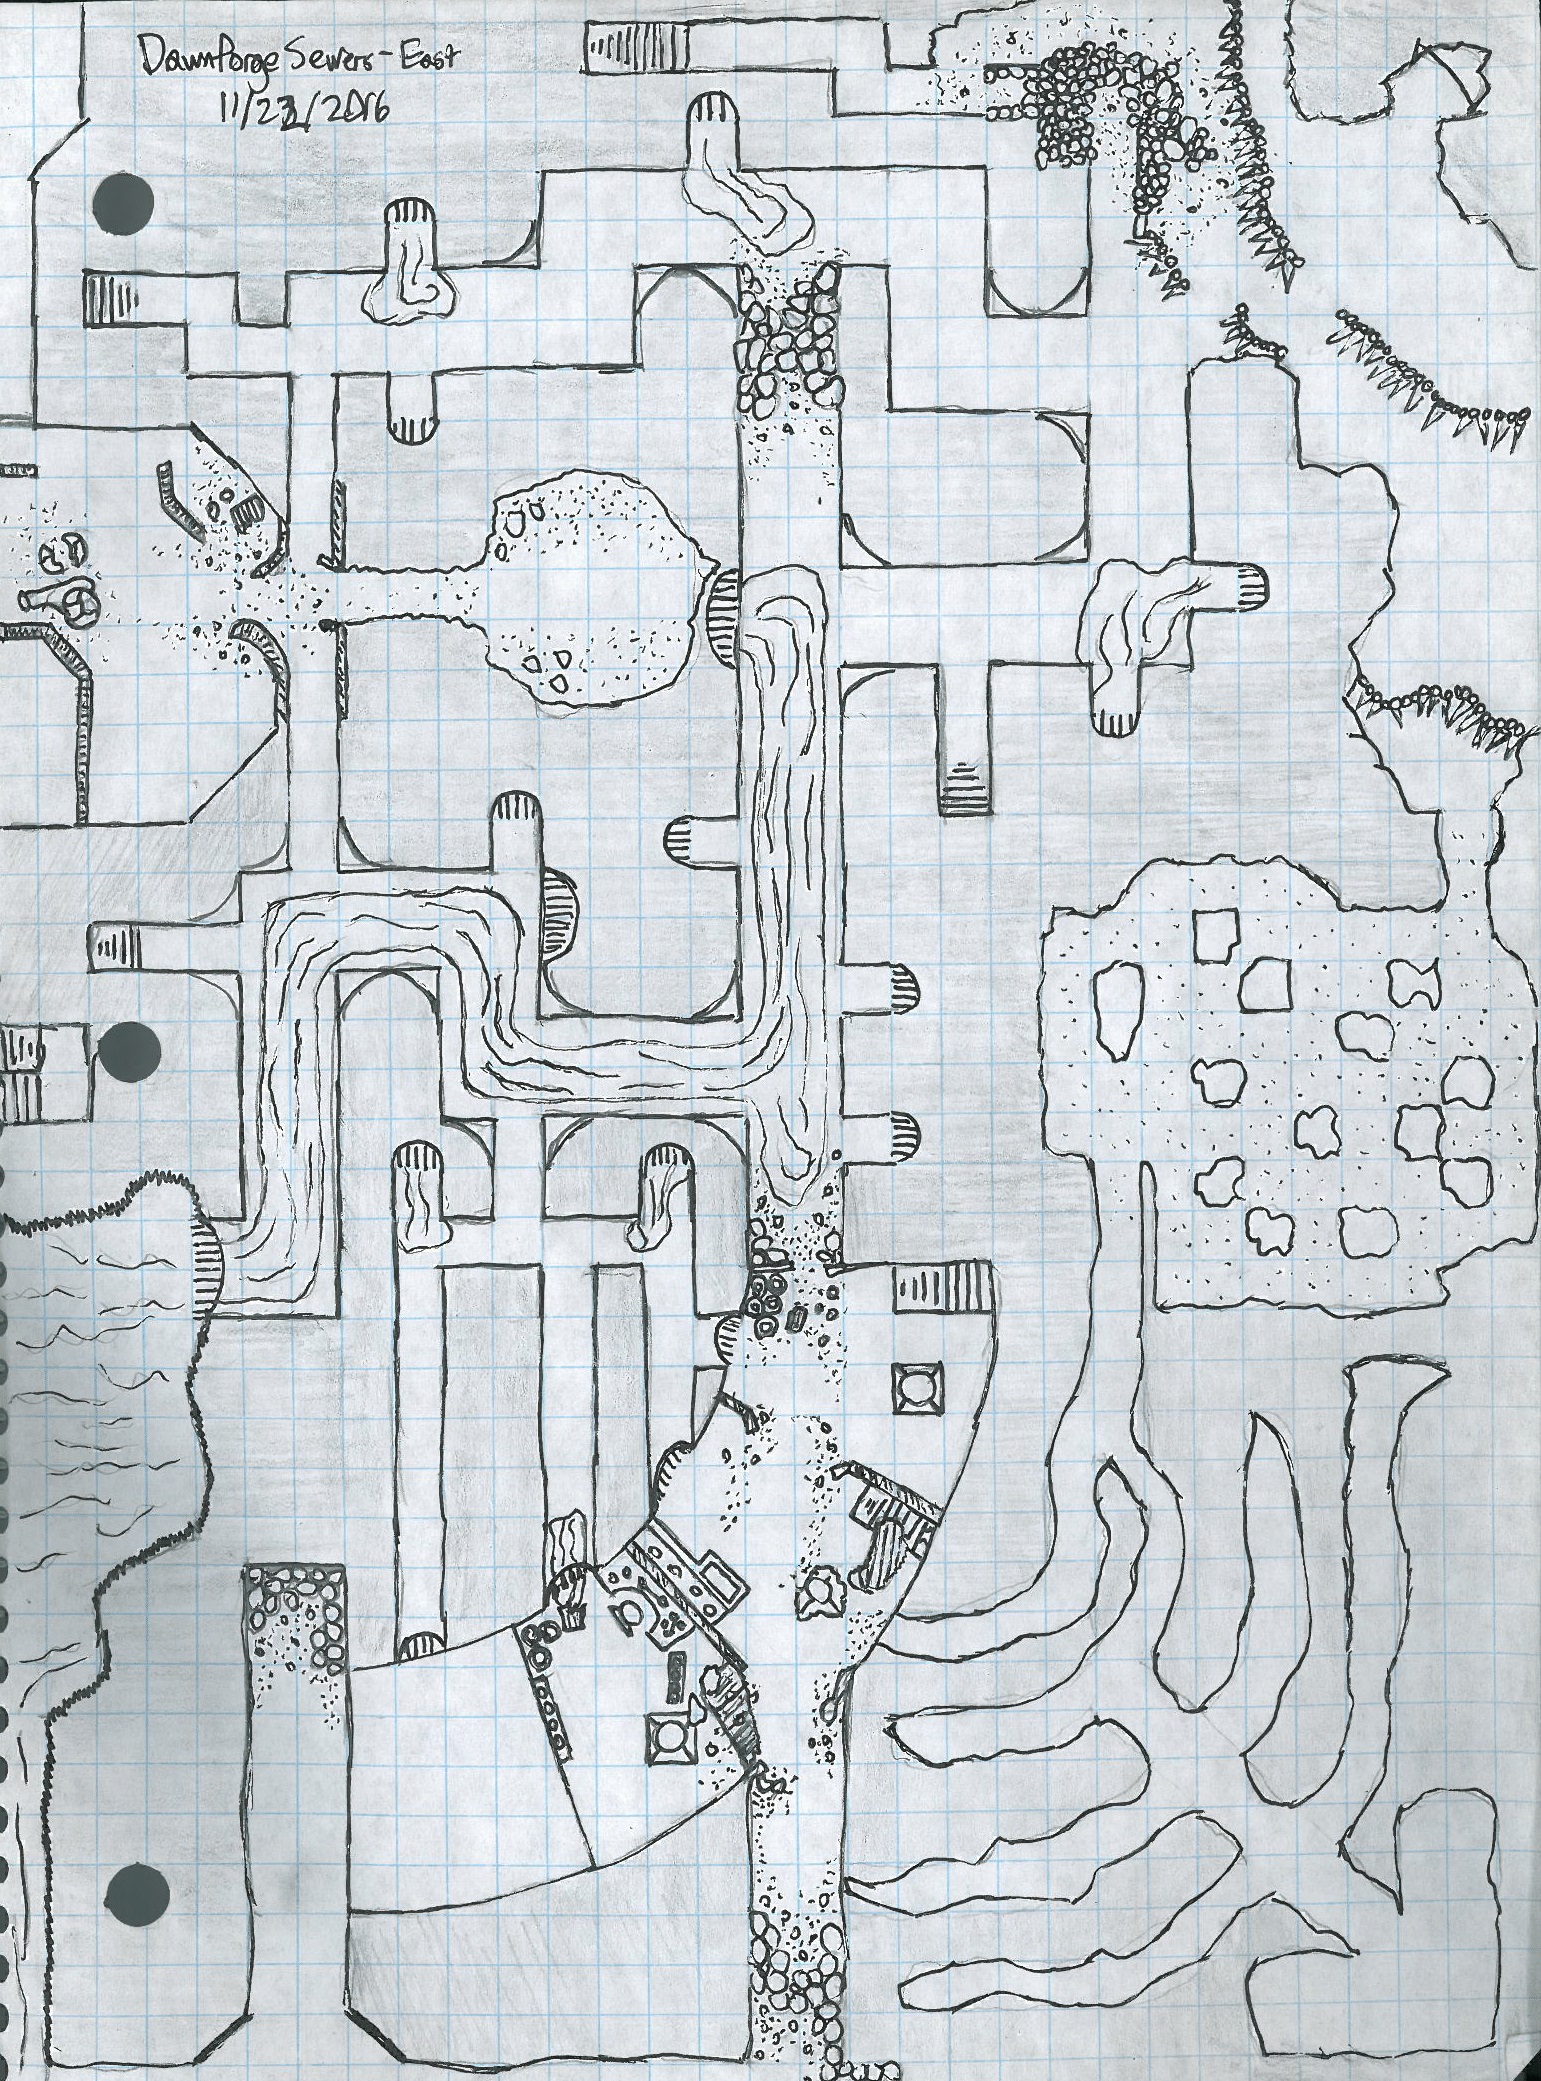 Dawnforge Sewers-East
11/23/2016